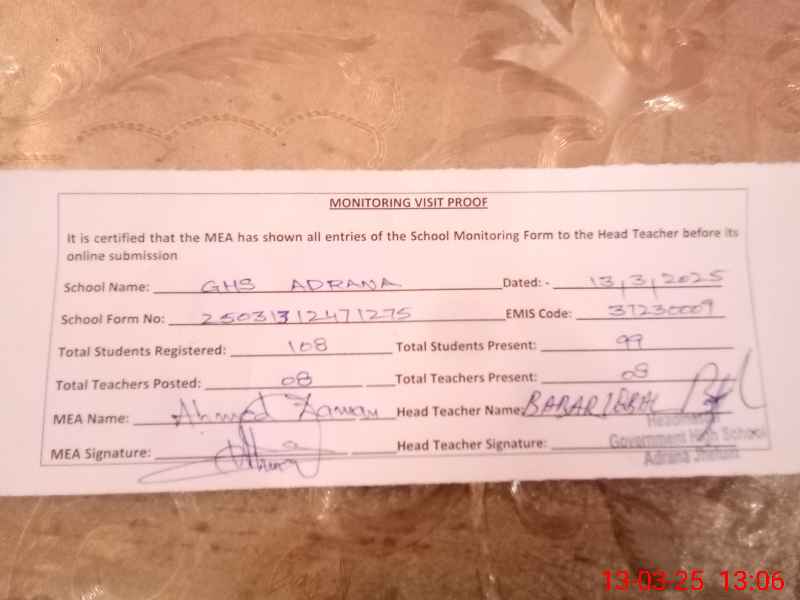 MONITORING VISIT PROOF
It is certified that the MEA has shown all entries of the School Monitoring Form to the Head Teacher before its
online submission
School Name: GHS ADRANA Dated: - 13,3,2025
School Form No: 25031312471275 EMIS Code: 37230009
Total Students Registered: 108 Total Students Present: 99
Total Teachers Posted: 08 Total Teachers Present: 08
MEA Name: Ahmed Zaman Head Teacher Name: BABAR IQBAL
MEA Signature: Head Teacher Signature:
Headmaster
Government High School
Adrana Jhelum
13-03-25 13:06